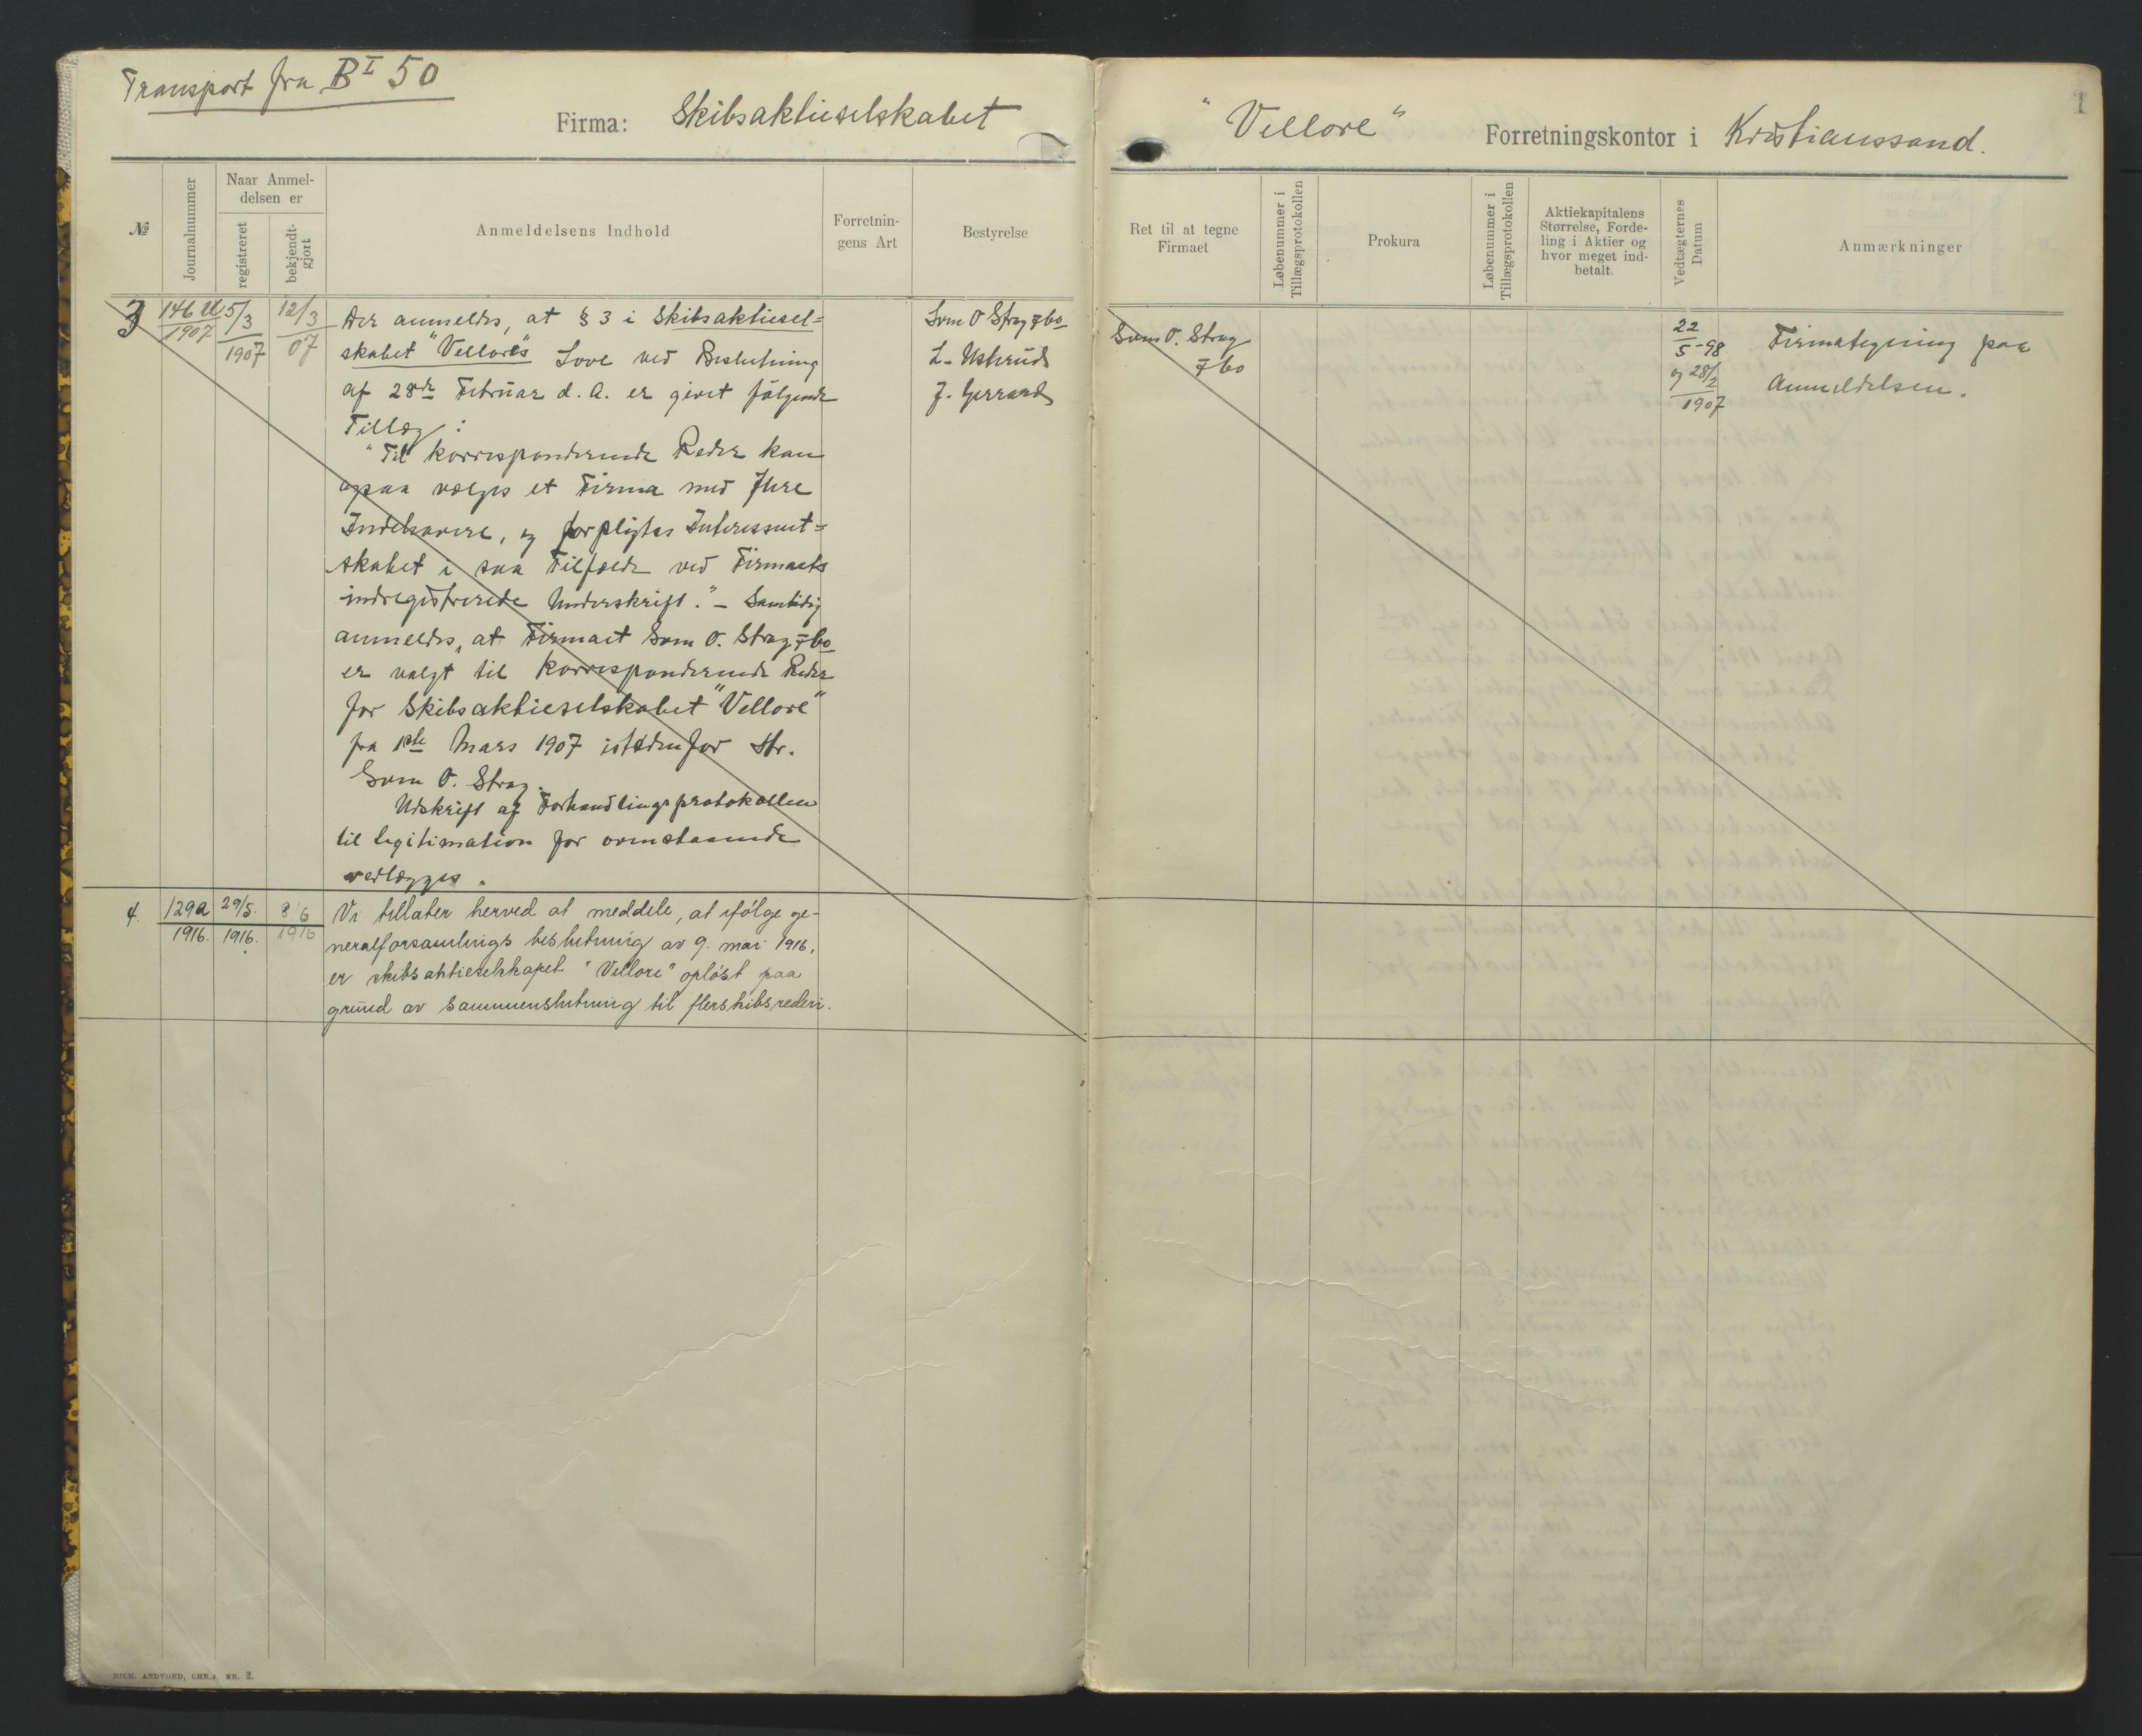 Transport fra B I 50
Firma: Skibsaktieselskabet
"Vellore" Forretningskontor i Kristianssand.
1
№
Journalnummer
Naar Anmel-
delsen er
registreret
bekjendt-
gjort
Anmeldelsens Indhold
Forretnin-
gens Art
Bestyrelse
Ret til at tegne
Firmaet
Løbenummer i
Tillægsprotokollen
Prokura
Løbenummer i
Tillægsprotokollen
Aktiekapitalens
Størrelse, Forde-
ling i Aktier og
hvor meget ind-
betalt.
Vedtægternes
Datum
Anmærkninger
3
146
1907
5/3
1907
12/3
07
Der anmeldes, at § 3 i Skibsaktiesel=
skabet "Vellore"s Love ved Beslutning
af 28de Februar d. A. er givet følgende
Tillæg:
"Til korresponderende Reder kan
ogsaa vælges et Firma med flere
Indehavere, og forpligtes Interessent=
skabet i saa Tilfælde ved Firmaets
indregistrerede Underskrift." – Samtidig
anmeldes, at Firmaet Sven O. Stray & Co
er valgt til korresponderende Reder
for Skibsaktieselskabet "Vellore"
fra 1ste Mars 1907 istedenfor Hr.
Sven O. Stray.
Udskrift af Forhandlingsprotokollen
til legitimation for ovenstaaende
vedlægges.
Sven O Stray & Co
L. Usterud
J. Gerrard
Sven O. Stray
& Co
22
5 -98
og 28/2
1907
Firmategning paa
Anmeldelsen.
4.
129a
1916.
29/5.
1916.
8/6
1916
Vi tillater herved at meddele, at ifølge ge-
neralforsamlings beslutning av 9. mai 1916,
er skibsaktieselskapet "Vellore" opløst paa
grund av sammenslutning til flerskibsrederi.
RICH. ANDVORD, CHR.a. NR. 2.